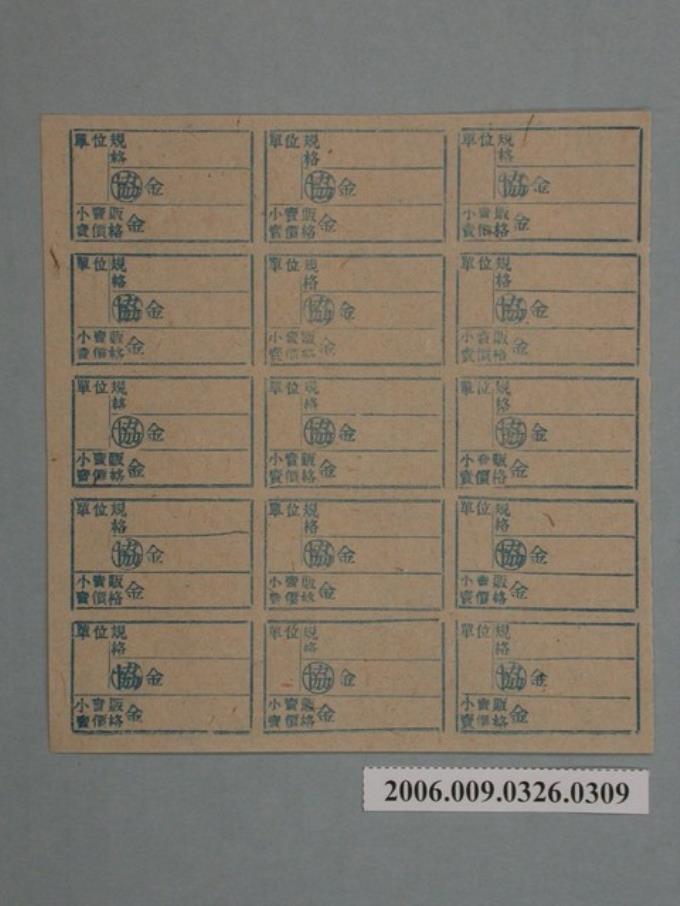 單位規
格
協金
小賣販
賣價格金
單位規
格
協金
小賣販
賣價格金
單位規
格
協金
小賣販
賣價格金
單位規
格
協金
小賣販
賣價格金
單位規
格
協金
小賣販
賣價格金
單位規
格
協金
小賣販
賣價格金
單位規
格
協金
小賣販
賣價格金
單位規
格
協金
小賣販
賣價格金
單位規
格
協金
小賣販
賣價格金
單位規
格
協金
小賣販
賣價格金
單位規
格
協金
小賣販
賣價格金
單位規
格
協金
小賣販
賣價格金
單位規
格
協金
小賣販
賣價格金
單位規
格
協金
小賣販
賣價格金
單位規
格
協金
小賣販
賣價格金
2006.009.0326.0309